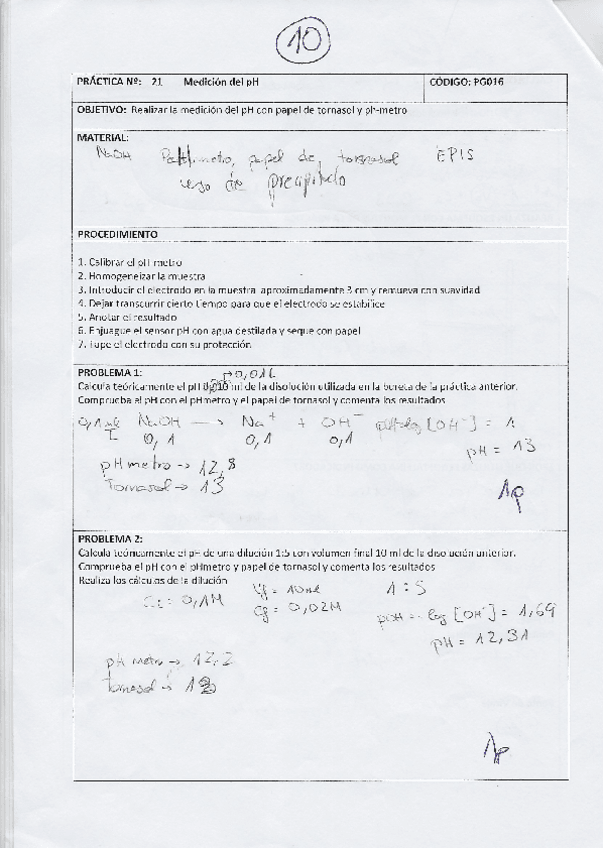 10
PRÁCTICA Nº: 21 Medición del pH CÓDIGO: PG016
OBJETIVO: Realizar la medición del pH con papel de tornasol y ph-metro
MATERIAL:
NaOH papel de tornasol EPIS
vaso de precipitado
PROCEDIMIENTO
1. Calibrar el pH metro
2. Homogeneizar la muestra
3. Introducir el electrodo en la muestra aproximadamente 3 cm y remueva con suavidad
4. Dejar transcurrir cierto tiempo para que el electrodo se estabilice
5. Anotar el resultado
6. Enjuague el sensor pH con agua destilada y seque con papel
7. Tape el electrodo con su protección
PROBLEMA 1:
→0,01L
Calcula teóricamente el pH 10 ml de la disolución utilizada en la bureta de la práctica anterior.
Comprueba el pH con el pHmetro y el papel de tornasol y comenta los resultados
NaOH → Na+ + OH- log [OH-] = 1
0,1 0,1 0,1 pH = 13
pHmetro → 12,8
Tornasol → 13
PROBLEMA 2:
Calcula teóricamente el pH de una dilución 1:5 con volumen final 10 ml de la disolución anterior.
Comprueba el pH con el pHmetro y papel de tornasol y comenta los resultados
Realiza los cálculos de la dilución
Ci = 0,1M Vf = 10ml 1:5
Cf = 0,02M pOH = -log [OH-] = 1,69
pH = 12,31
pH metro → 12,2
tornasol →